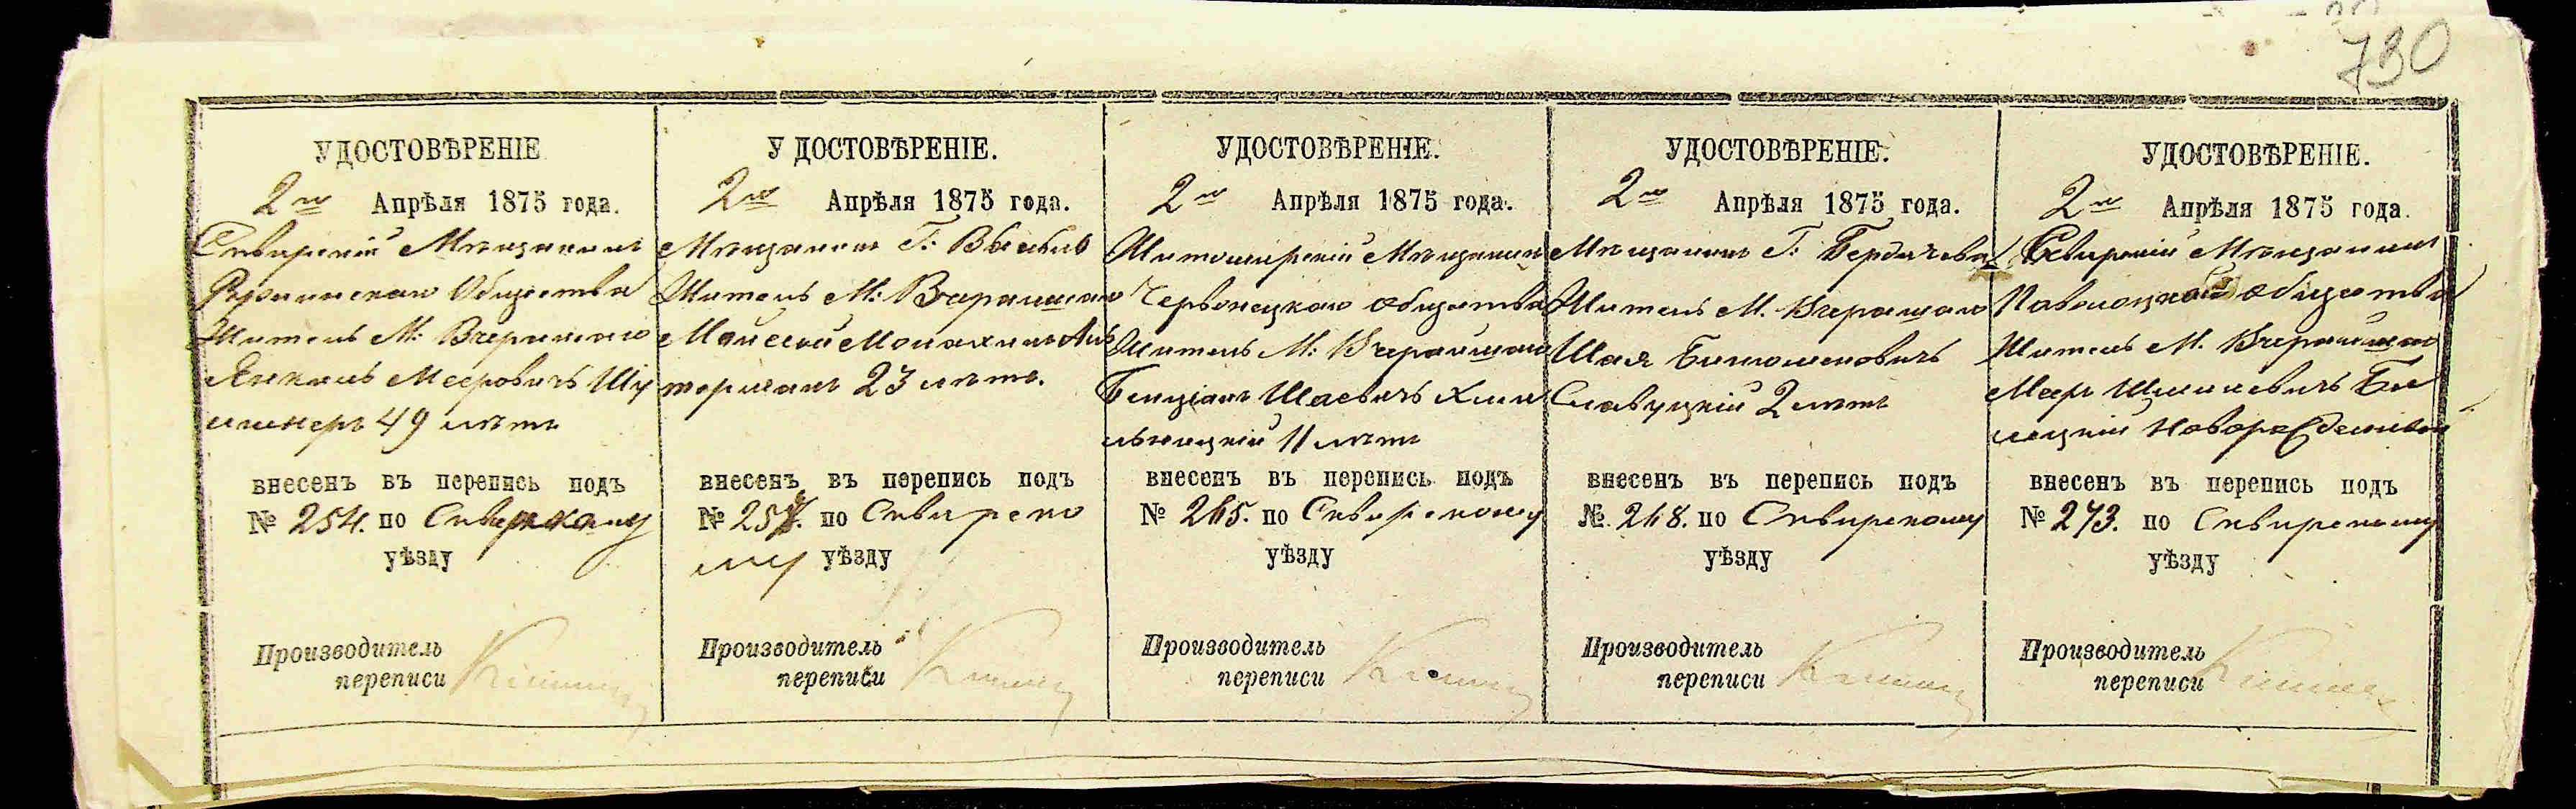 730
УДОСТОВѢРЕНІЕ
2го Апрѣля 1875 года.
Сквирскій Мѣщанинъ
Ружинскаго Общества
Житель М: Вчерайшаго
Янкель Мееровичъ Шу
4 9 лѣтъ
внесенъ въ перепись подъ
№ 254. по Сквирскому
уѣзду
Производитель
переписи
УДОСТОВѢРЕНІЕ.
2го Апрѣля 1875 года.
Мѣщанинъ Г:
Житель М: Вчерайшаго
23 лѣтъ.
внесенъ въ перепись подъ
№ по Сквирско
му уѣзду
Производитель
переписи
УДОСТОВѢРЕНІЕ.
2го Апрѣля 1875 года.
Житомирскій Мѣщанинъ
Червонецкаго общества
Житель М: Вчерайшаго
Бенціанъ Шаевичъ Хмѣ
льницкій 11 лѣтъ
внесенъ въ перепись подъ
№ 265. по Сквирскому
уѣзду
Производитель
переписи
УДОСТОВѢРЕНІЕ.
2го Апрѣля 1875 года.
Мѣщанинъ Г: Бердичева
Житель М. Вчерайшаго
Шая
Славуцкій 2 лѣтъ
внесенъ въ перепись подъ
№ 268. по Сквирскому
уѣзду
Производитель
переписи
УДОСТОВѢРЕНІЕ.
2го Апрѣля 1875 года.
Сквирскій Мѣщанинъ
Паволоцкаго общества
Житель М. Вчерайшаго
Меер Бѣ
лецкій Новорожденный
внесенъ въ перепись подъ
№ 273. по Сквирскому
уѣзду
Производитель
переписи